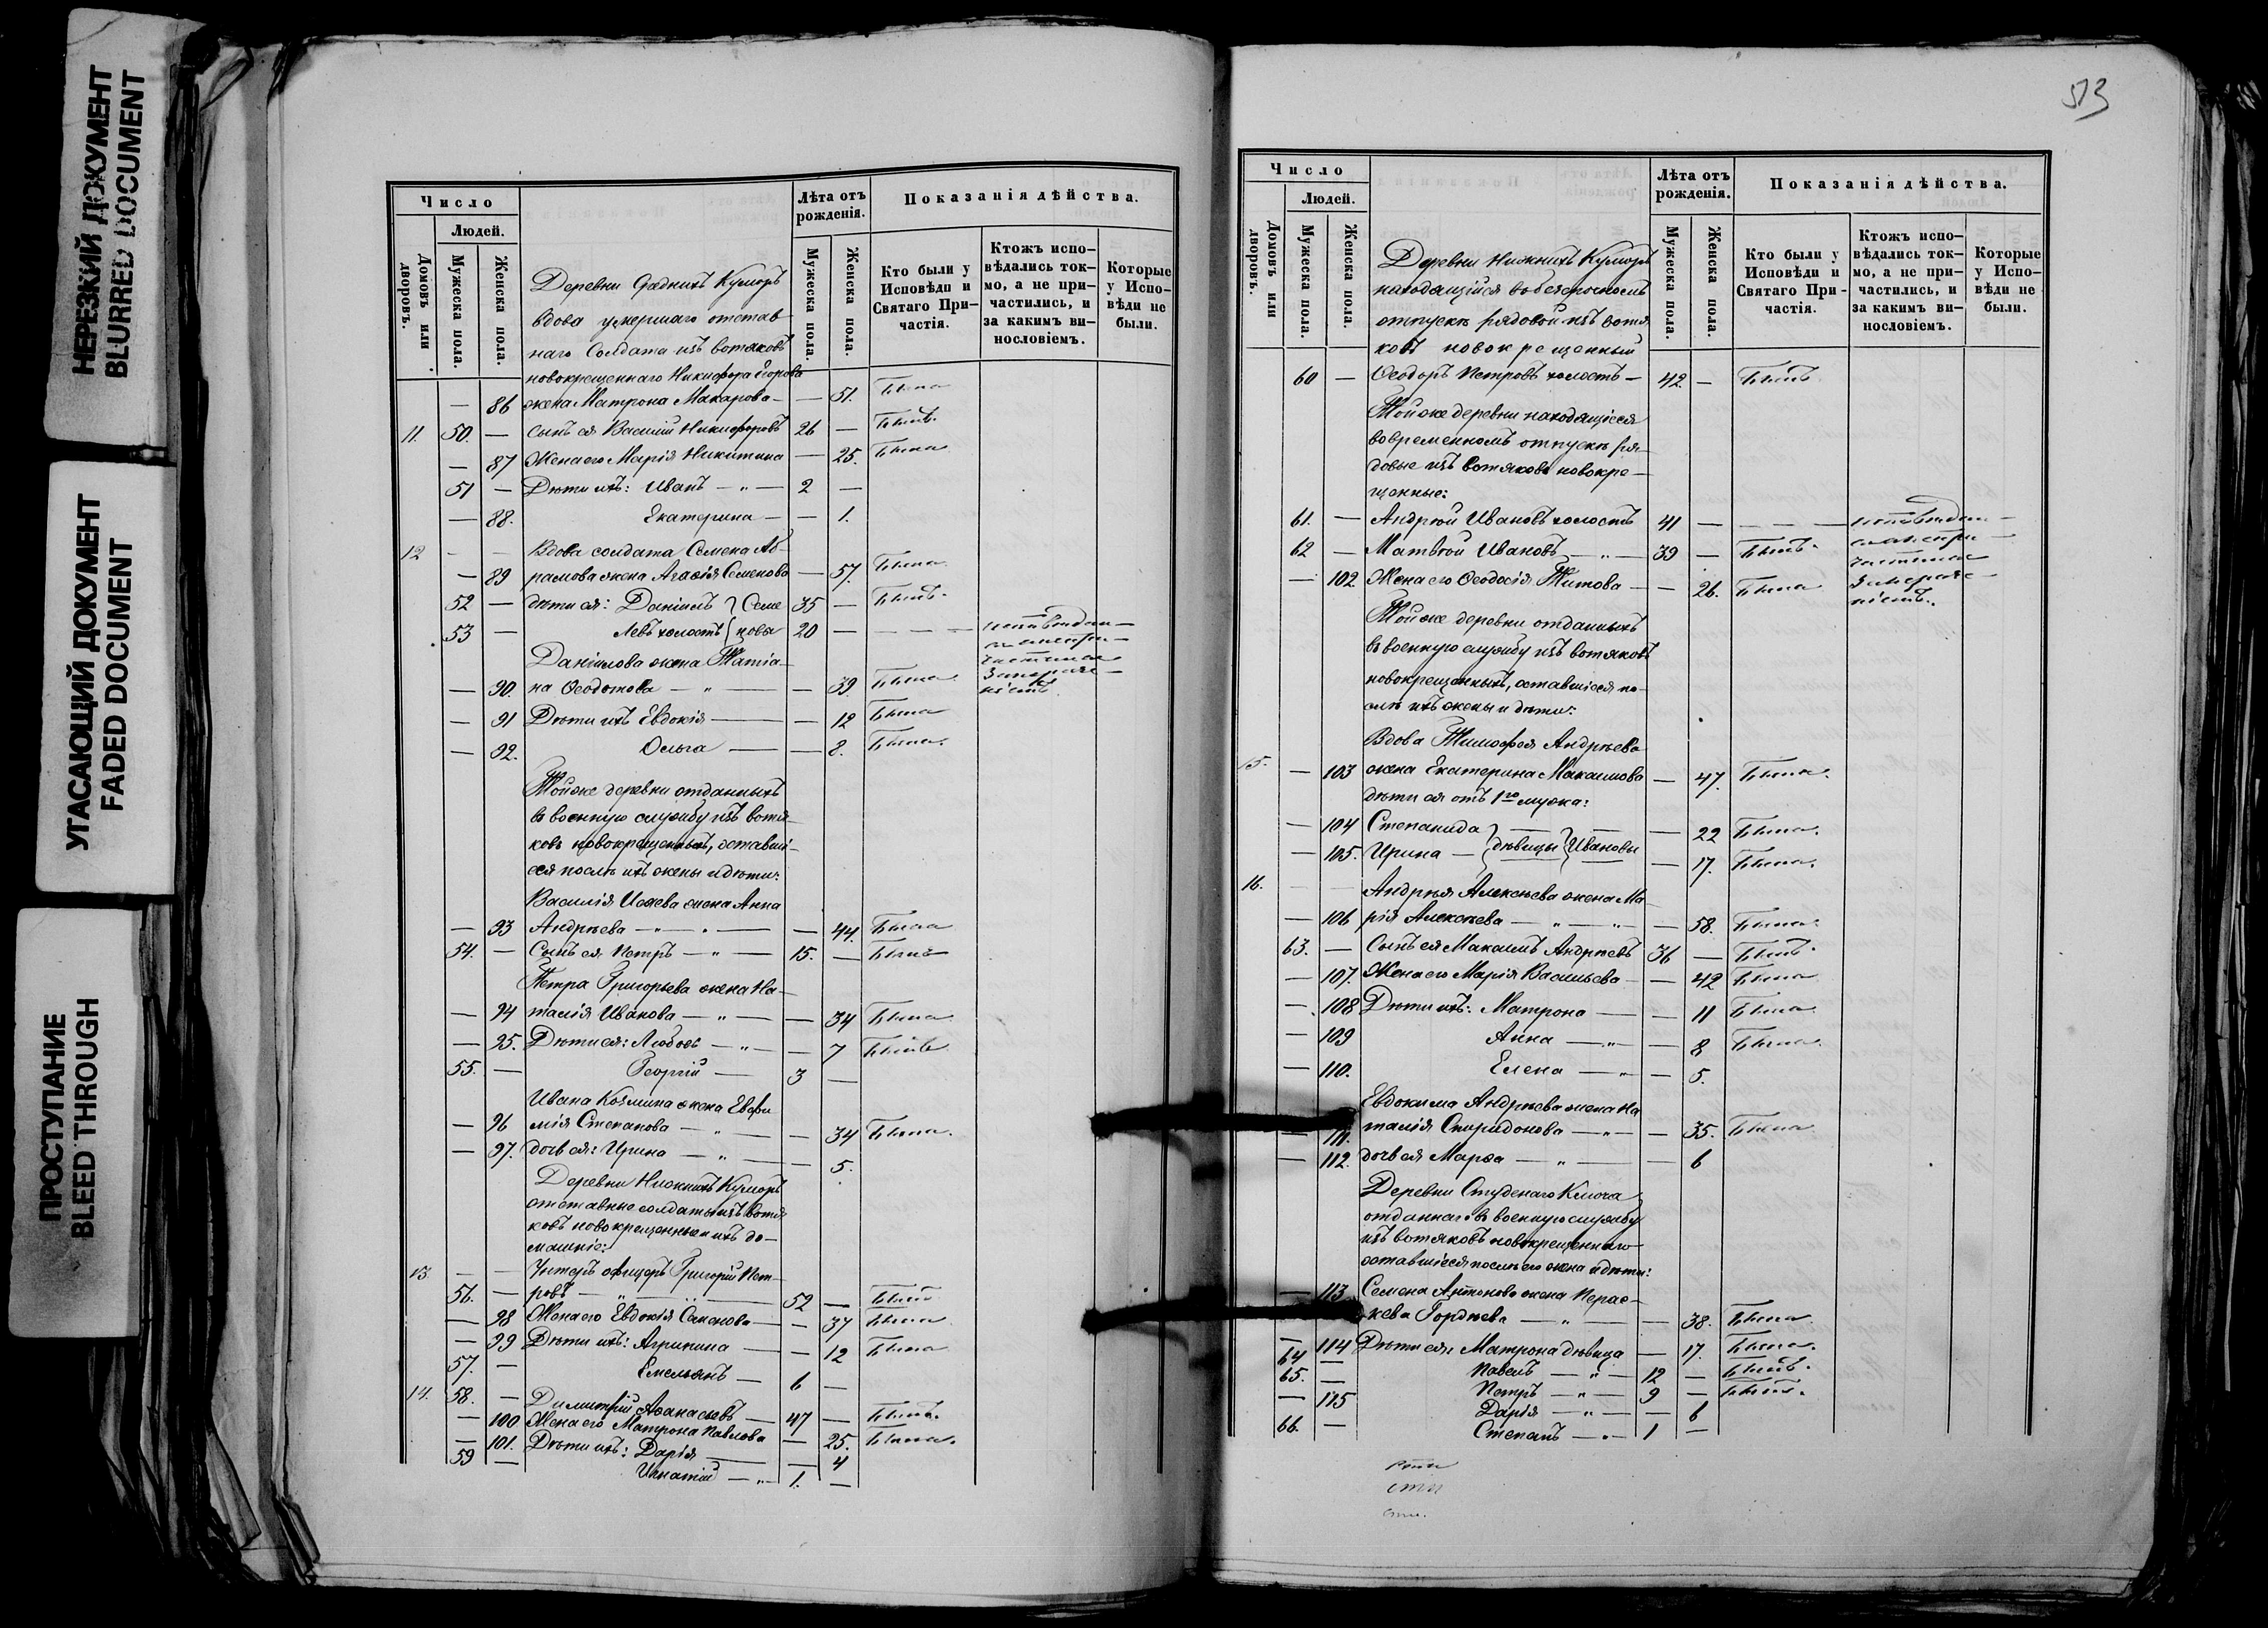 НЕРЕЗКИЙ ДОКУМЕНТ
BLURRED DOCUMENT
УГАСАЮЩИЙ ДОКУМЕНТ
FADED DOCUMENT
ПРОСТУПАНИЕ
BLEED THROUGH
Число
Людей.
Домовъ или дворовъ.
Мужеска пола.
Женска пола.
Лѣта отъ рожденія.
Мужеска пола.
Женска пола.
Показанія дѣйства.
Кто были у Исповѣди и Святаго Причастія.
Ктожъ исповѣдались токмо, а не причастились, и за какимъ винословіемъ.
Которые у Исповѣди не были.
Деревни Среднихъ Кумаръ
вдова умершаго отстав-
наго Солдата изъ вотяковъ
новокрещеннаго Никифора Егорова
— 86 жена Матрона Макарова — — 51. Была
11. 50. — Сынъ ея Василій Никифоровъ 26 — Былъ.
— 87 Жена его Марія Никитина — 25. Была
51 — Дѣти ихъ: Иванъ — „ — 2 —
— 88. Екатерина — — 1.
12 — — Вдова солдата Семена Аб-
— 89 рамова жена Агафія Семенова — 57. Была
52 — дѣти ея: Даніилъ } Семе 35 — Былъ.
53 — Левъ холостъ { новы 20 — — — — исповѣдал-
ся а непри-
Даніилова жена Татіа-
частился
— 90. на Ѳеодотова — „ — — 39 Была за
— 91 Дѣти ихъ Евдокія — — 12 Была
— 92. Ольга — — 8. Была.
Тойже деревни отданныхъ
въ военную службу изъ вотя-
ковъ новокрещенныхъ, оставші-
еся послѣ ихъ жены и дѣти:
Василія Исаева жена Анна
— 93 Андрѣева — „ — — 44. Была
54. — Сынъ ея Петръ — „ — 15. — Былъ
Петра Григорьева жена На-
— 94 талія Иванова — „ — — 34 Была
— 95. Дѣти ея: Любовь — „ — — 7
55. — Георгій — 3 —
Ивана Козмина жена Евфи
— 96 мія Степанова — „ — — 34 Была.
— 97. дочь ея: Ирина — „ — — 5.
Деревни Нижнихъ Кумаръ
отставные солдаты изъ вотя
ковъ новокрещенные и ихъ до-
машніе:
13. — — Унтеръ офицеръ Григорій Пет-
56. — ровъ — „ — 52 — Былъ
— 98 Жена его Евдокія Семенова — — 37 Была
— 99 Дѣти ихъ: Агрипина — — 12 Была
57. — Емельянъ — 6 —
14. 58. — Димитрій Аѳанасьевъ — 47 — Былъ.
— 100 Жена его Матрона Павлова — 25. Была.
— 101. Дѣти ихъ: Дарія — — 4
59 — Игнатій — „ — 1. —
513
Число
Людей.
Домовъ или дворовъ.
Мужеска пола.
Женска пола.
Лѣта отъ рожденія.
Мужеска пола.
Женска пола.
Показанія дѣйства.
Кто были у Исповѣди и Святаго Причастія.
Ктожъ исповѣдались токмо, а не причастились, и за какимъ винословіемъ.
Которые у Исповѣди не были.
Деревни Нижнихъ Кумаръ
находящійся въ безсрочномъ
отпускѣ рядовой изъ вотя
ковъ новокрещенный
60 — Ѳеодоръ Петровъ холостъ — 42. — Былъ
Тойже деревни находящіеся
во временномъ отпускѣ ря-
довые изъ вотяковъ новокре-
щенные:
61. — Андрей Ивановъ холостъ 41 — — — — исповѣдал-
ся а непри-
62 — Матвѣй Ивановъ — „ — 39 — Былъ. частился
— 102 Жена его Ѳеодосія Титова — — 26. Была за
Тойже деревни отданныхъ
въ военную службу изъ вотяковъ
новокрещенныхъ, оставшіеся по-
слѣ ихъ жены и дѣти:
Вдова Тимофея Андрѣева
15. — 103 жена Екатерина Максимова — 47. Была.
дѣти ея отъ 1го мужа:
— 104 Степанида } — } — — 22 Была.
— 105. Ирина — { дѣвицы { Ивановы — 17. Была.
16. — — Андрея Алексѣева жена Ма
— 106 рія Алексѣева — „ — „ — — 58. Была.
63. — Сынъ ея Максимъ Андрѣевъ 36 — Былъ.
— 107. Жена его Марія Васильева — — 42 Была
— 108 Дѣти ихъ: Матрона — — 11 Была
— 109 Анна — „ — — 8 Была.
— 110. Елена — „ — — 5.
Евдокима Андрѣева жена На
— 111. талія Спиридонова — „ — — 35. Была
— 112. дочь ея Марѳа — „ — — 6
Деревни Студенаго Ключа
отданнаго въ военную службу
изъ вотяковъ новокрещеннаго
оставшіеся послѣ его жена и дѣти:
— 113 Семена Антонова жена Парас-
кева Гордѣева — „ — — 38. Была
— 114 Дѣти ея: Матрона дѣвица — 17. Была.
64 — Павелъ — „ — 12 — Былъ.
65. — Петръ — „ — 9 — Былъ.
— 115 Дарія — „ — — 6
66. — Степанъ — „ — 1 —